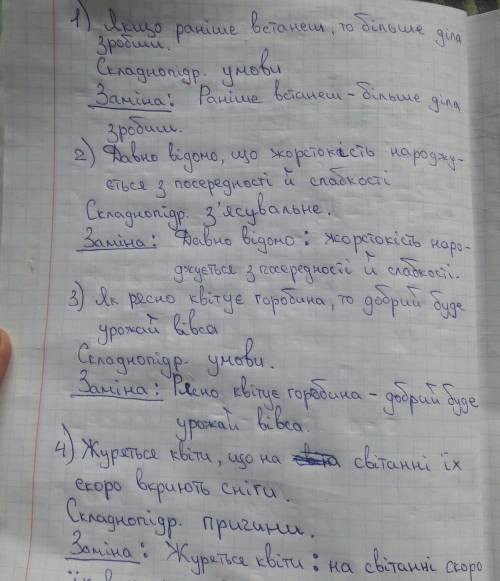 1) Якщо раніше встанеш, то більше діла
зробиш.
Складнопідр. умови
Заміна: Раніше встанеш - більше діла
зробиш.
2) Давно відомо, що жорстокість народжу-
ється з посередності й слабкості
Складнопідр. з'ясувальне.
Заміна: Давно відомо: жорстокість наро-
джується з посередності й слабкості.
3) Як рясно квітує горобина, то добрий буде
урожай вівса
Складнопідр. умови.
Заміна: Рясно квітує горобина - добрий буде
урожай вівса.
4) Журяться квіти, що на світанні їх
скоро вкриють сніги.
Складнопідр. причини.
Заміна: Журяться квіти: на світанні скоро
їх